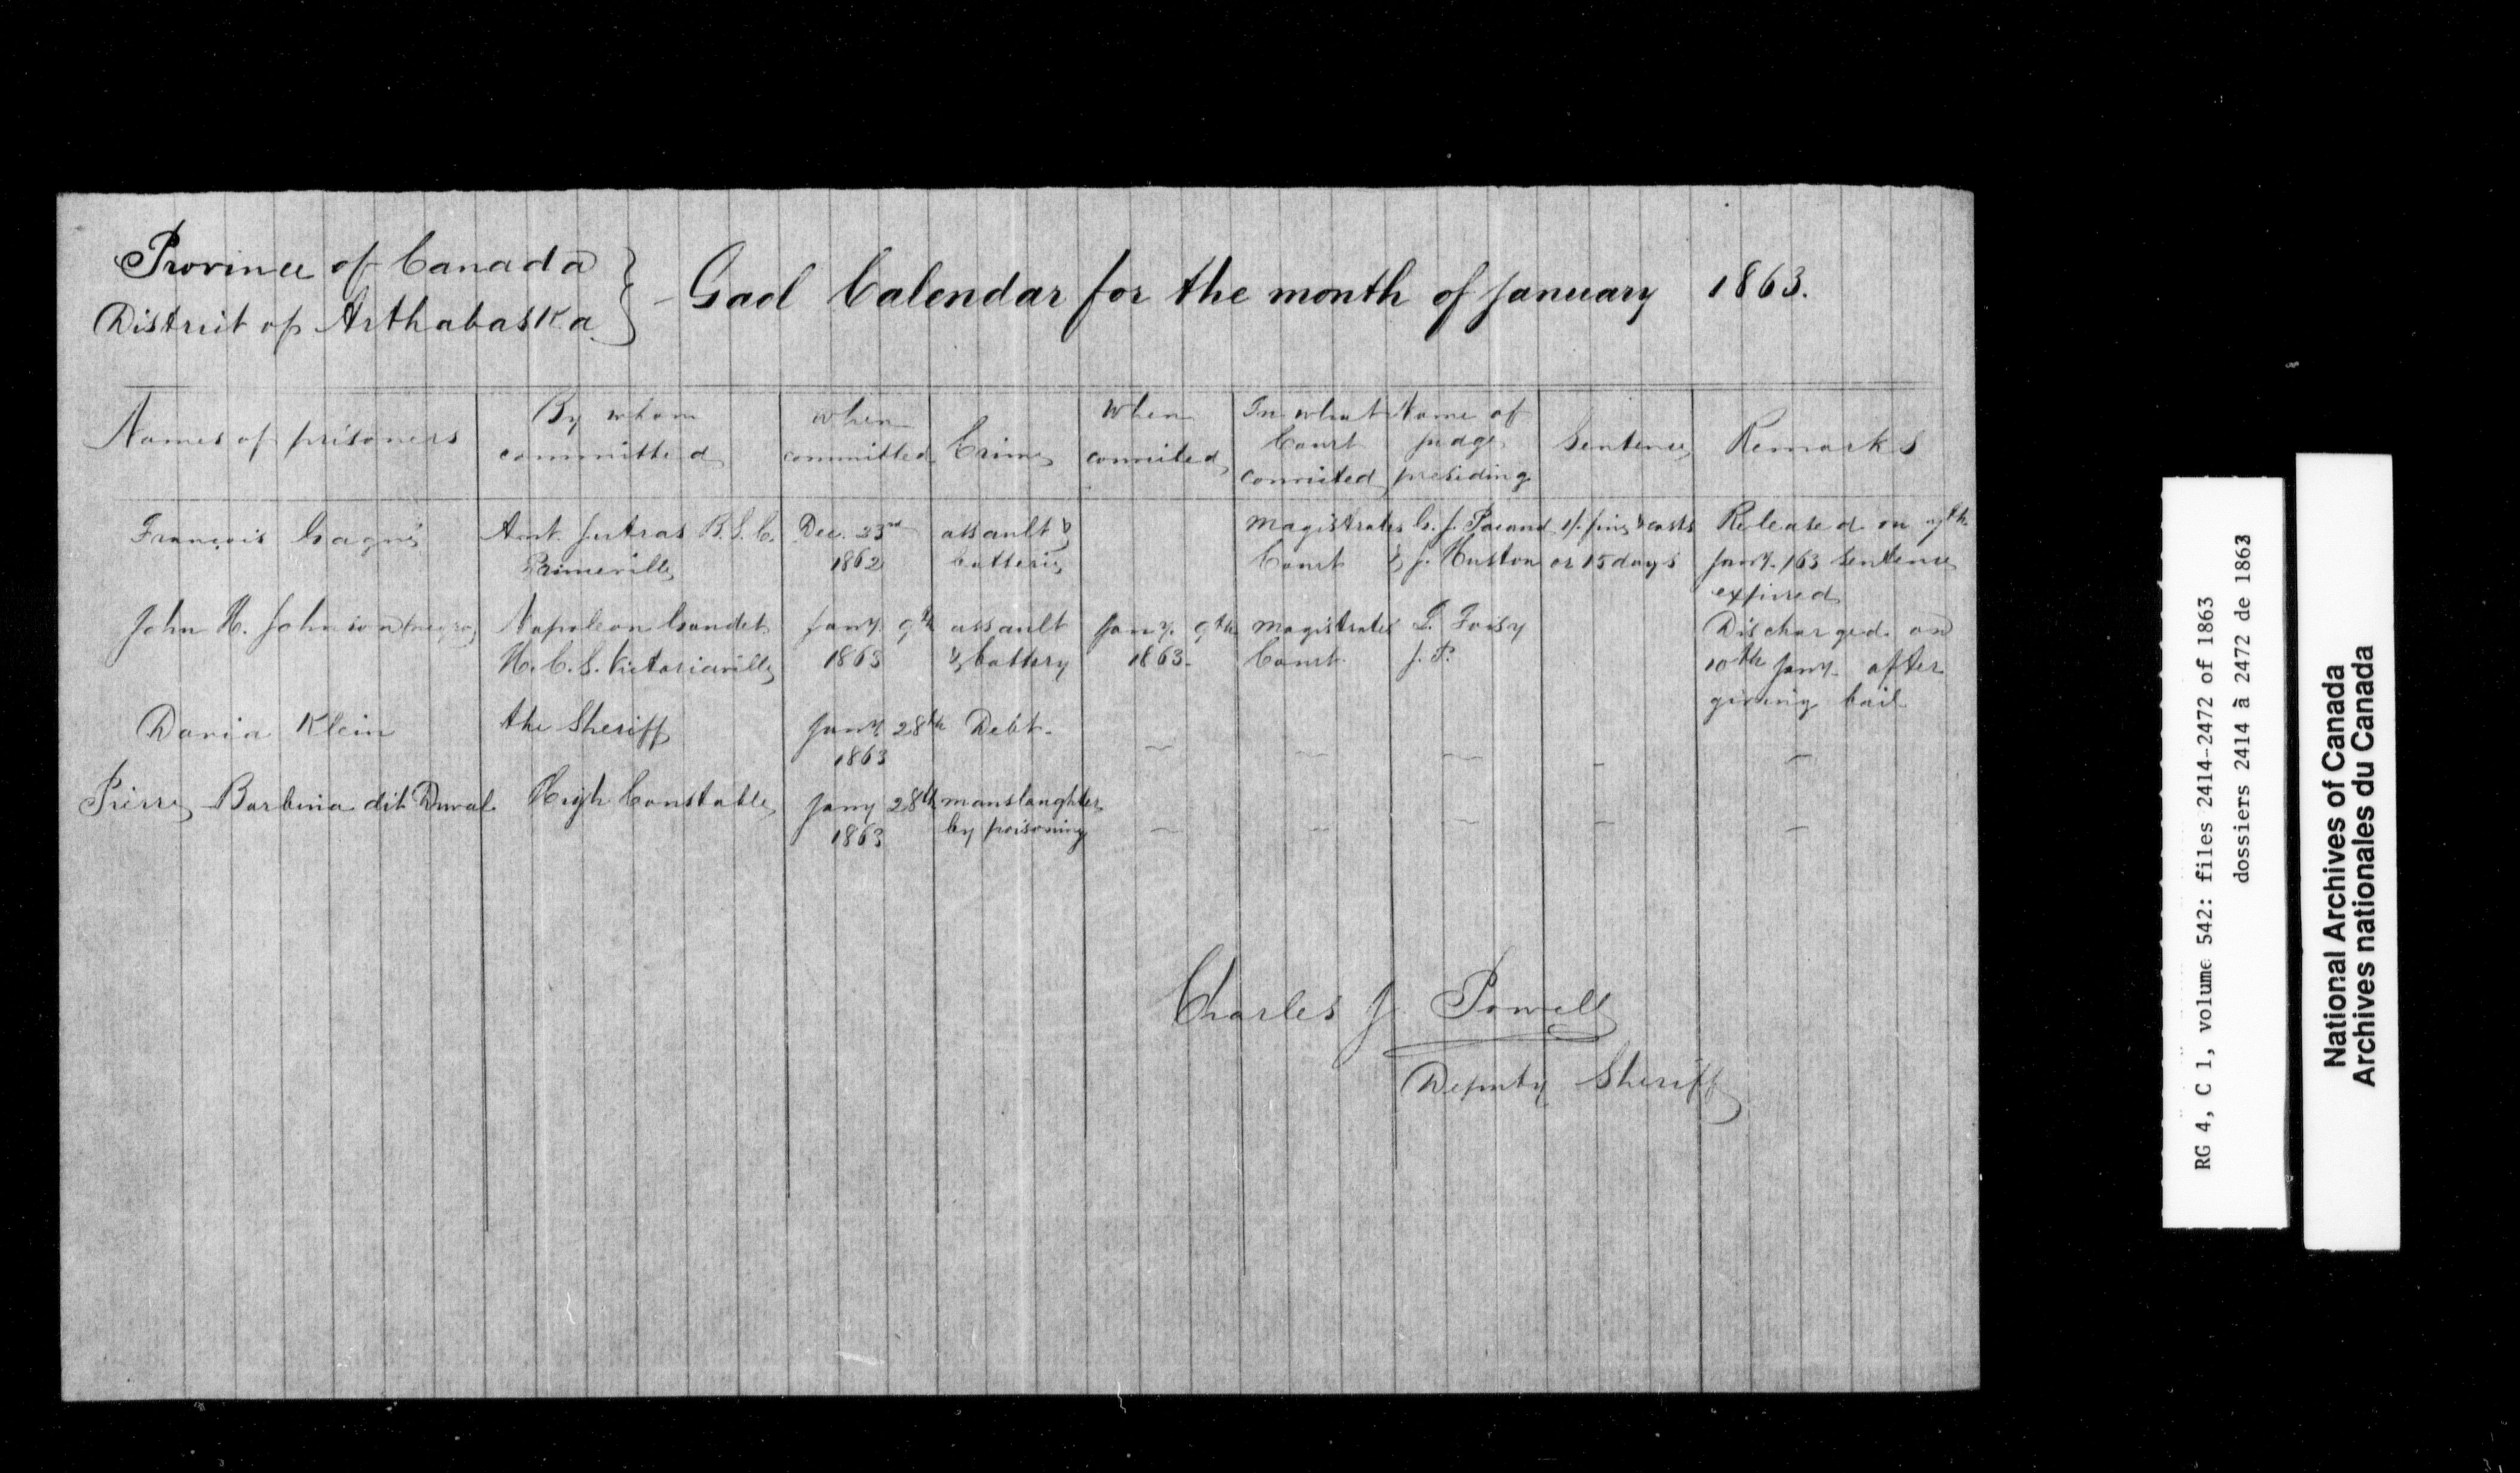 Province of Canada
District of Arthabaska
Gaol Calendar for the month of January 1863.
Names of prisoners
By whom
committed
when
committed
Crime
When
convicted
In what
Court
convicted
Name of
judge
presiding
Sentence
Remarks
François Gagné
Ant. Jutras B.S.C.
Princeville
Dec. 23rd
1862
assault &
batterie
Magistrates
Court
C. J. Pacaud
& J. Huston
1/. fine & costs
or 15 days
Released on 7th
Jany. /63 Sentence
expired
John H. Johnson (negro)
Napoleon Gaudet
H.C.S. Victoriaville
Jany. 9th
1863
assault
& battery
Jany. 9th
1863-
Magistrates
Court
Foisy
J.P.
Discharged on
10th Jany. after
giving bail
Klein
the Sheriff
Jany. 28th
1863
Debt-
Pierre dit Duval
High Constable
Jany 28th
1863
manslaughter
by poisoning
Charles J. Powell
Deputy Sheriff
RG 4, C 1, volume 542: files 2414-2472 of 1863
dossiers 2414 à 2472 de 1863
National Archives of Canada
Archives nationales du Canada